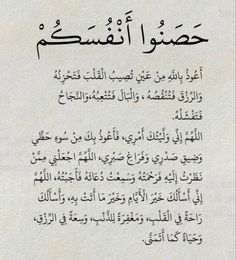 حَصِّنُوا أَنْفُسَكُمْ
أَعُوذُ بِاللَّهِ مِنْ عَيْنٍ تُصِيبُ الْقَلْبَ فَتُحْزِنُهُ
وَالرِّزْقَ فَتُنْقِصُهُ ، وَالْبَالَ فَتُتْعِبُهُ،وَالنَّجَاحَ
فَتُفْشِلُهُ.
اللَّهُمَّ إِنِّي وَلَّيْتُكَ أَمْرِي، فَأَعُوذُ بِكَ مِنْ سُوءِ حَظِّي
وَضِيقِ صَدْرِي وَفَرَاغِ صَبْرِي، اللَّهُمَّ اجْعَلْنِي مِمَّنْ
نَظَرْتَ إِلَيْهِ فَرَحِمْتَهُ وَسَمِعْتَ دُعَائَهُ فَأَجَبْتَهُ، اللَّهُمَّ
إِنِّي أَسْأَلُكَ خَيْرَ الْأَيَّامِ وَخَيْرَ مَا أَتَتْ بِهِ، وَأَسْأَلُكَ
رَاحَةً فِي الْقَلْبِ، وَمَغْفِرَةً لِلذَّنْبِ، وَسِعَةً فِي الرِّزْقِ،
وَحَيَاةً كَمَا أَتَمَنَّى.